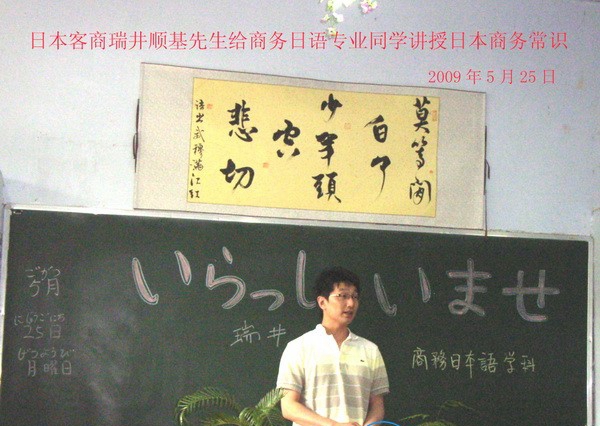 日本客商瑞井顺基先生给商务日语专业同学讲授日本商务常识
2009年5月25日
莫等閑
白了
少年頭
空
悲切
语出武穆滿江红
いらっし いませ
ごがつ
5月
にじゅうごにち
25日
げつようび
月曜日
瑞井
商務日本語学科